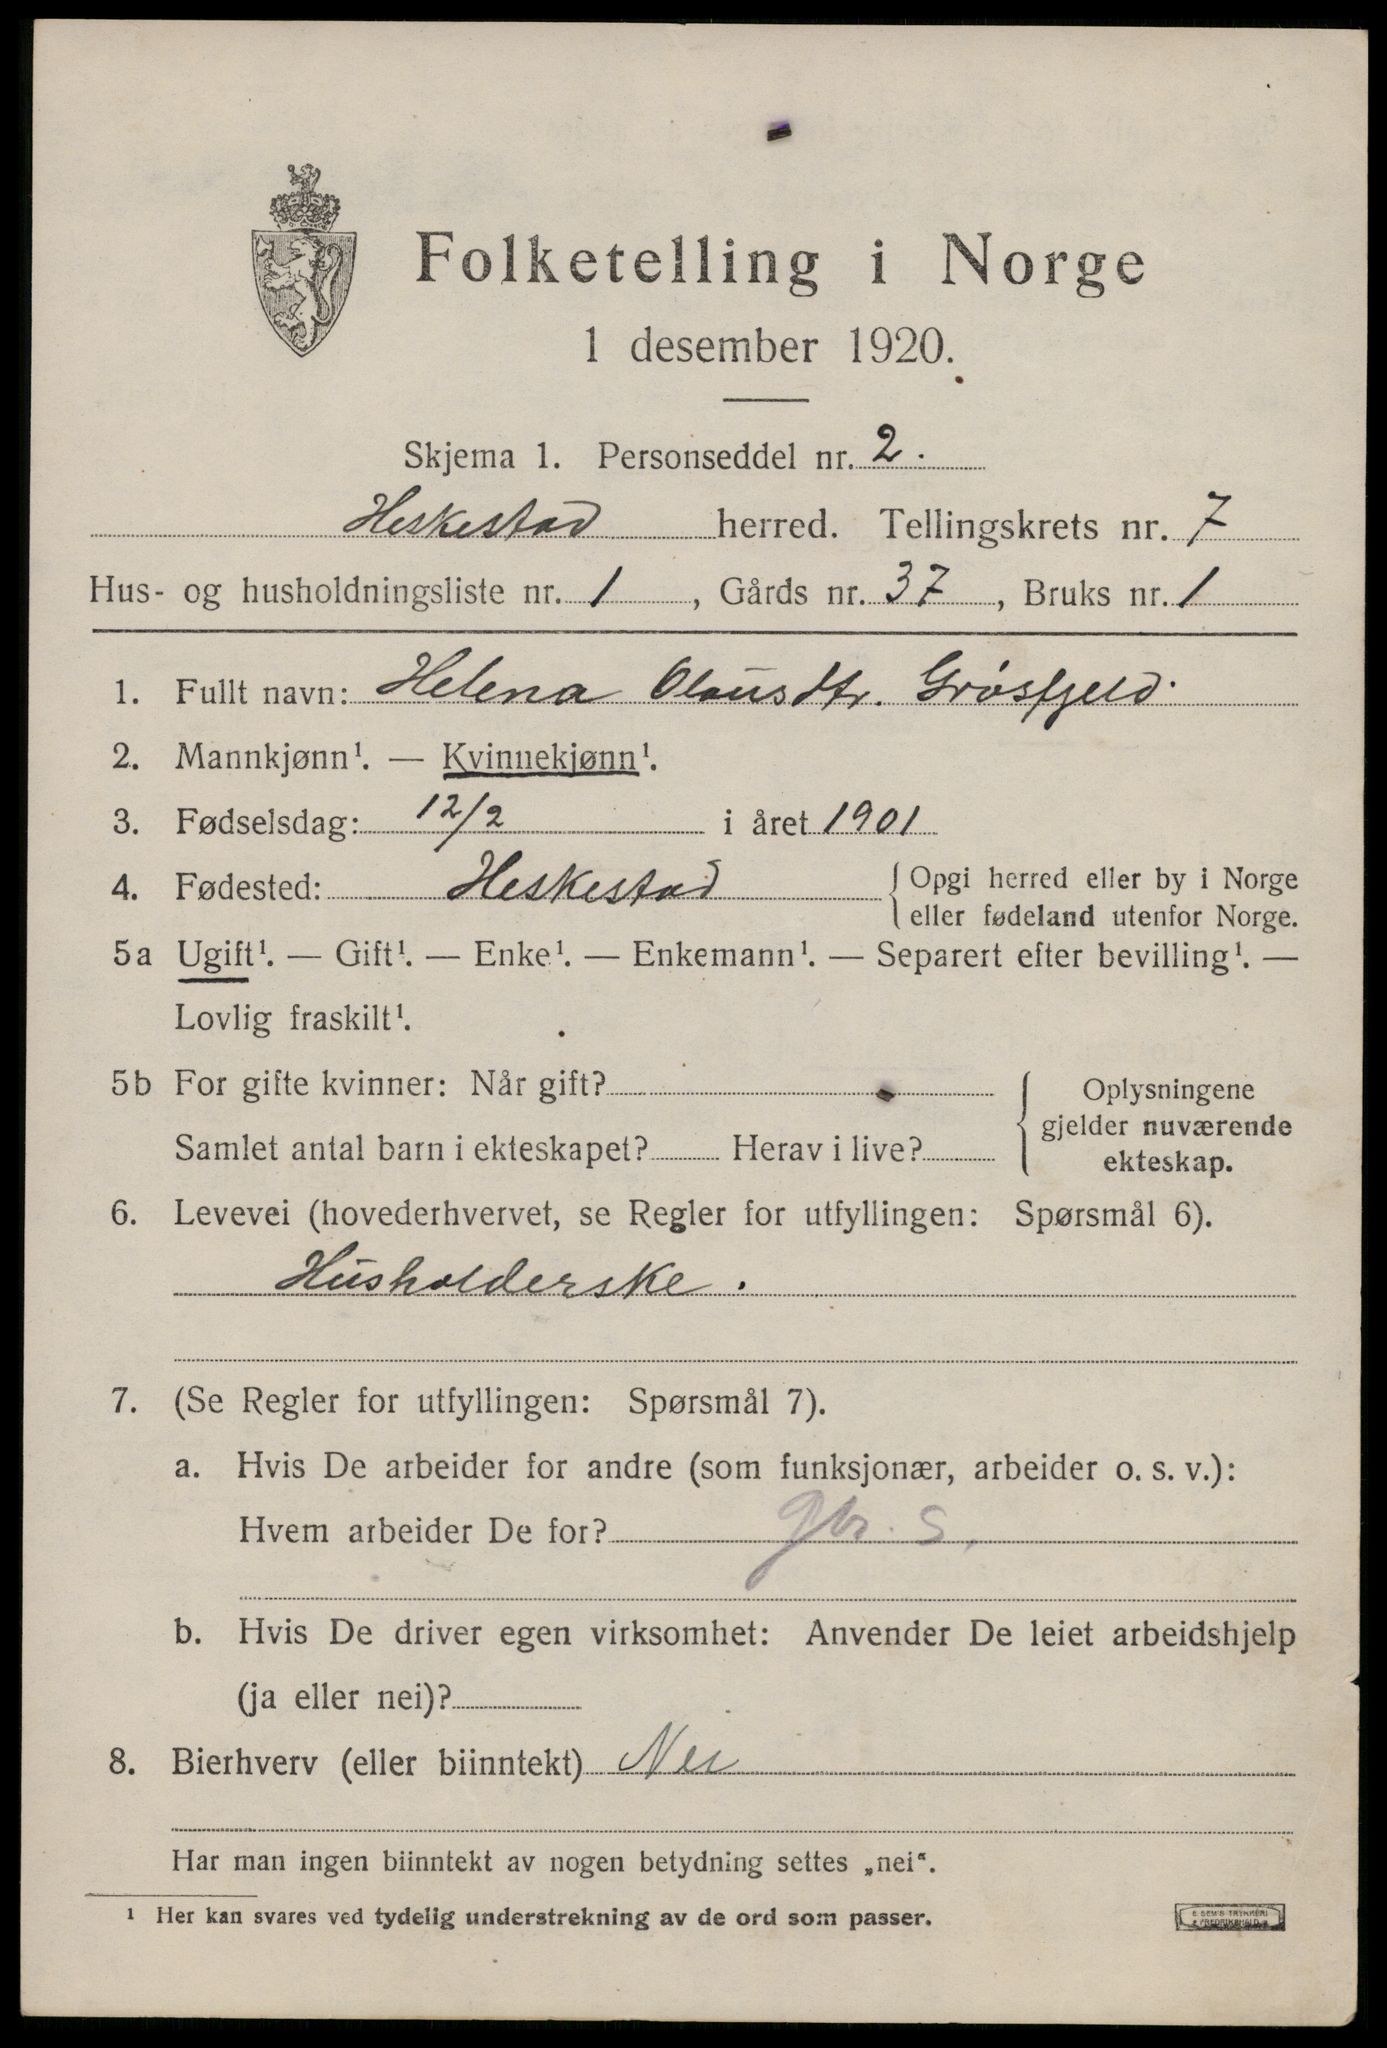 Folketelling i Norge
1 desember 1920.
Skjema 1. Personseddel nr. 2.
Heskestad herred. Tellingskrets nr. 7
Hus- og husholdningsliste nr. 1, Gårds nr. 37, Bruks nr. 1
1. Fullt navn: Helena Olausdtr. Grøsfjeld.
2. Mannkjønn¹. — Kvinnekjønn¹.
3. Fødselsdag: 12/2 i året 1901
4. Fødested: Heskestad { Opgi herred eller by i Norge
eller fødeland utenfor Norge.
5a Ugift¹. — Gift¹. — Enke¹. — Enkemann¹. — Separert efter bevilling¹. —
Lovlig fraskilt¹.
5b For gifte kvinner: Når gift? { Oplysningene
gjelder nuværende
Samlet antal barn i ekteskapet? Herav i live? ekteskap.
6. Levevei (hovederhvervet, se Regler for utfyllingen: Spørsmål 6).
Husholderske.
7. (Se Regler for utfyllingen: Spørsmål 7).
a. Hvis De arbeider for andre (som funksjonær, arbeider o. s. v.):
Hvem arbeider De for? gbr. s.
b. Hvis De driver egen virksomhet: Anvender De leiet arbeidshjelp
(ja eller nei)?
8. Bierhverv (eller biinntekt) Nei
Har man ingen biinntekt av nogen betydning settes „nei“.
¹ Her kan svares ved tydelig understrekning av de ord som passer.
E SEM'S TRYKKERI
FREDRIKSHALD